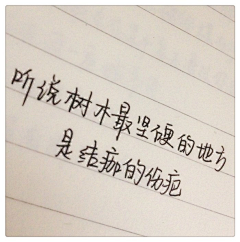 听说树木最坚硬的地方
是结痂的伤疤